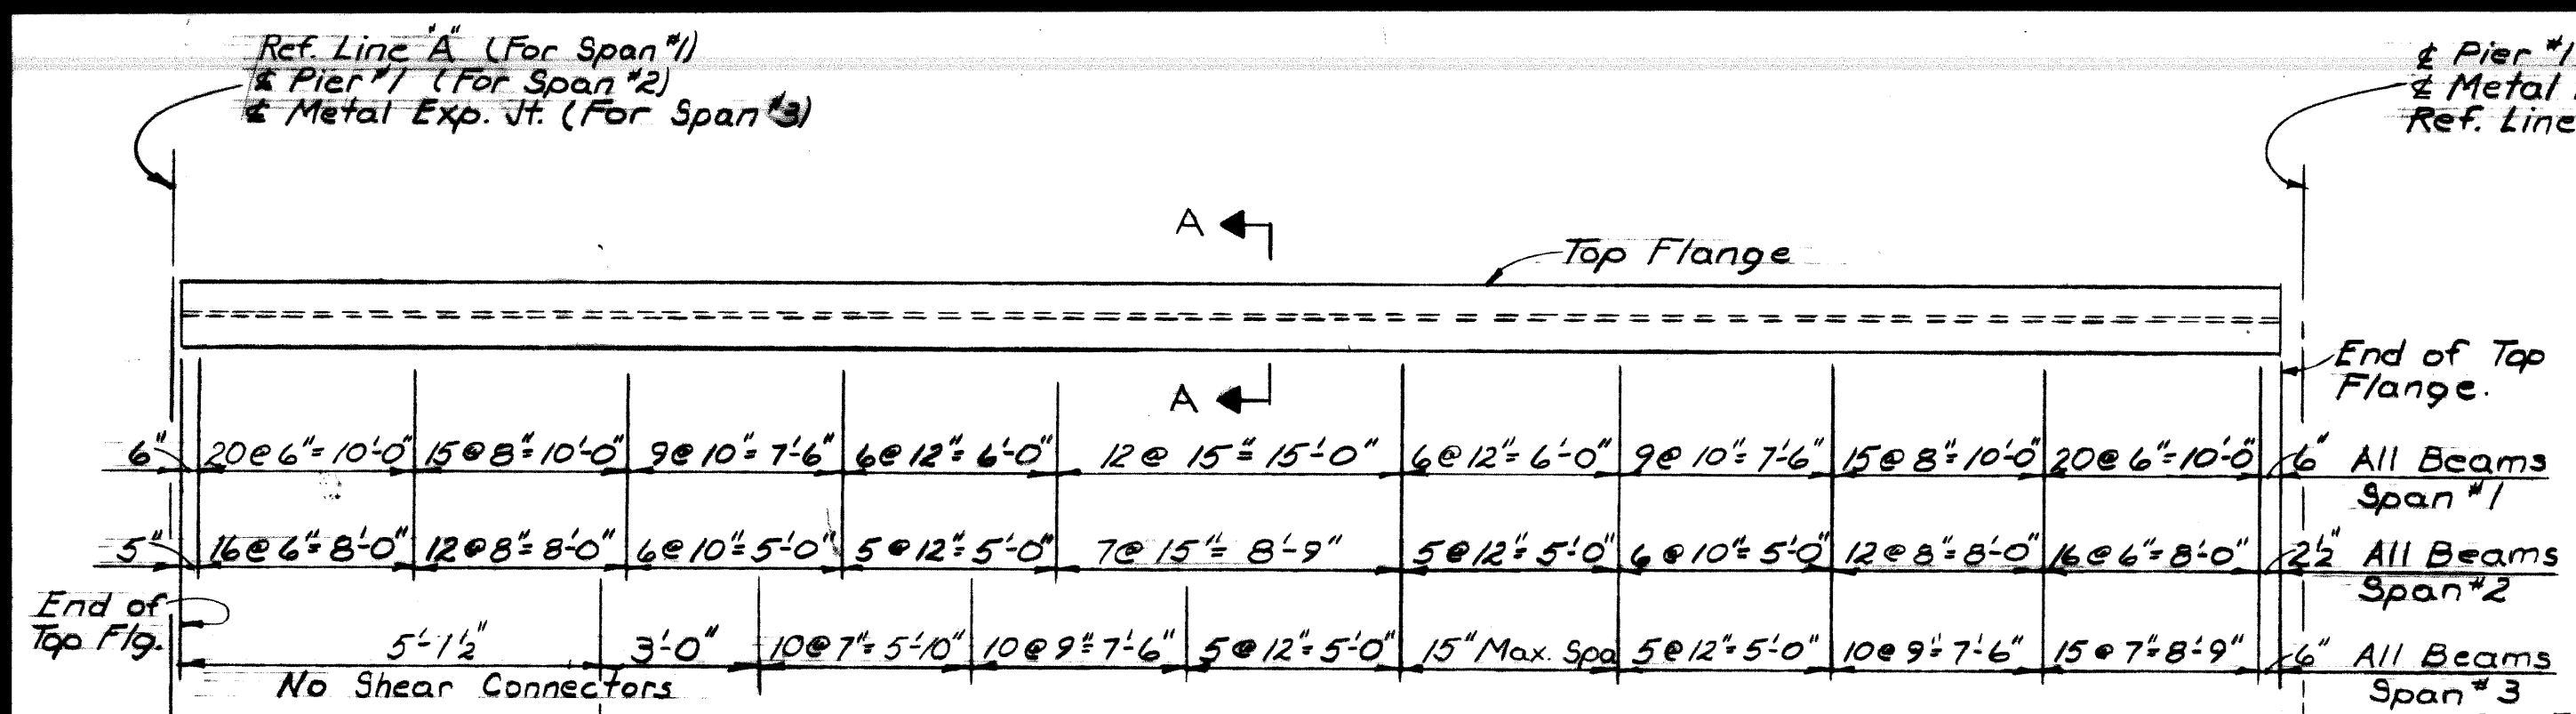 Ref. Line "A" (For Span #1)
℄ Pier #1 (For Span #2)
℄ Metal Exp. Jt. (For Span #3)
℄ Pier #1
℄ Metal
Ref. Line
A
Top Flange
A
End of Top
Flange.
6" 20@6"=10'-0" 15@8"=10'-0" 9@10"=7'-6" 6@12"=6'-0" 12@15"=15'-0" 6@12"=6'-0" 9@10"=7'-6" 15@8"=10'-0" 20@6"=10'-0" 6" All Beams
Span #1
5" 16@6"=8'-0" 12@8"=8'-0" 6@10"=5'-0" 5@12"=5'-0" 7@15"=8'-9" 5@12"=5'-0" 6@10"=5'-0" 12@8"=8'-0" 16@6"=8'-0" 2½" All Beams
Span #2
End of
Top Flg.
5'-1½" 3'-0" 10@7"=5'-10" 10@9"=7'-6" 5@12"=5'-0" 15" Max. Spa 5@12"=5'-0" 10@9"=7'-6" 15@7"=8'-9" 6" All Beams
No Shear Connectors
Span #3